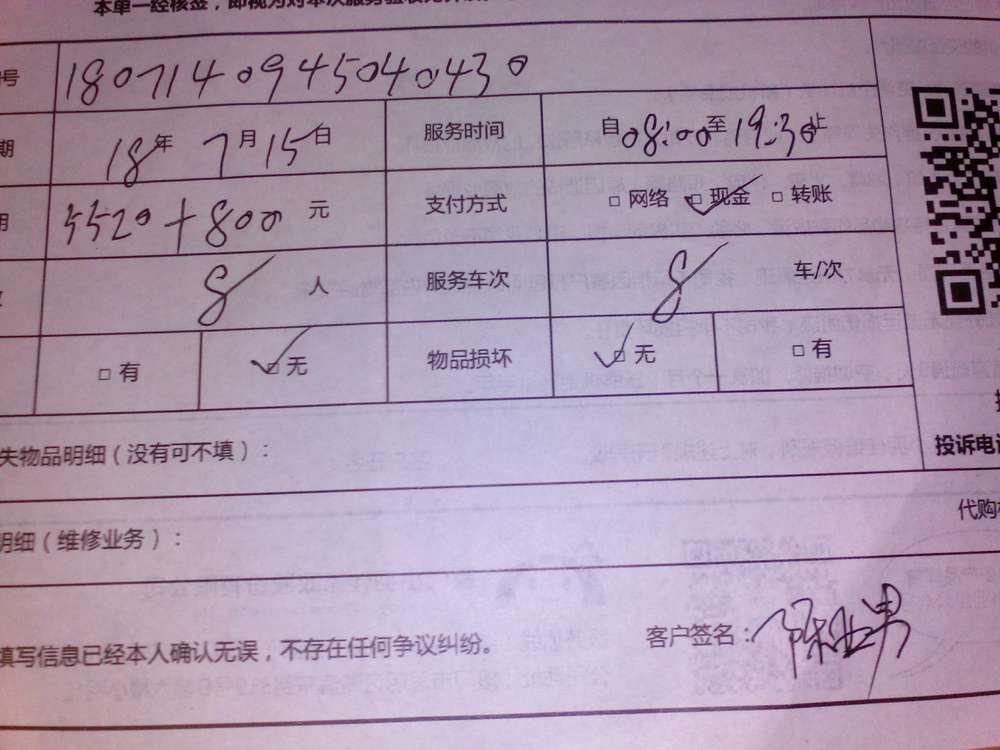 本单一经核签,即视为对本次服务验收
号 1807140945040430
期 18年 7月15日 服务时间 自08:00至19:30止
用 5520+800 元 支付方式 □网络 ☑现金 □转账
8 人 服务车次 8 车/次
□有 ☑无 物品损坏 ☑无 □有
失物品明细(没有可不填):
投诉电话
代购
明细(维修业务):
填写信息已经本人确认无误,不存在任何争议纠纷。
客户签名: